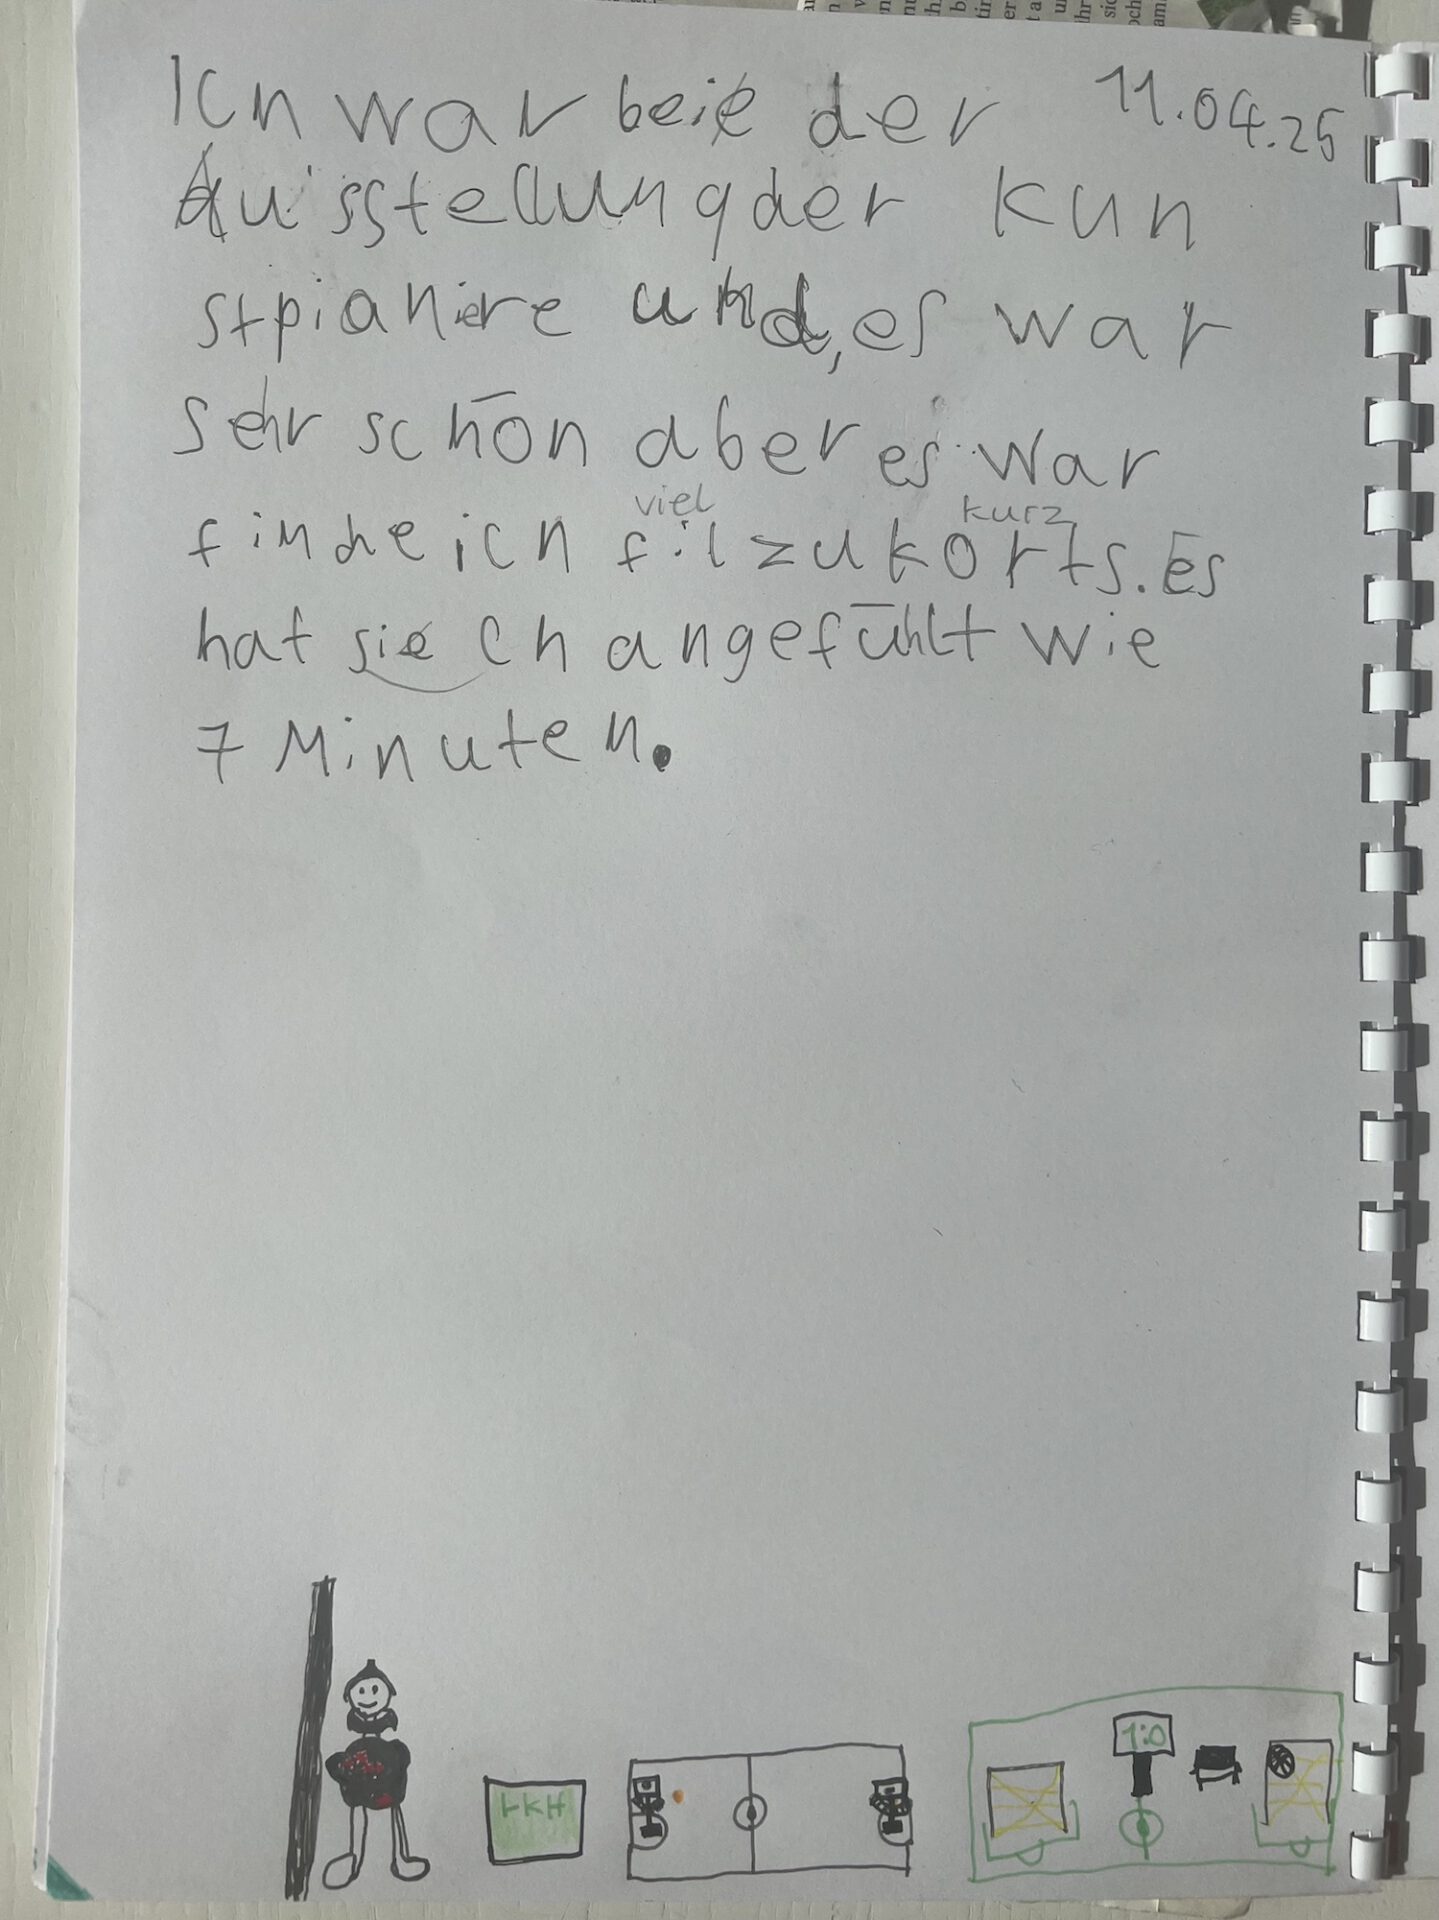 Ich war bei der 11.04.25
Ausstellung der Kun
stpianiere und, es war
sehr schön aber es war
viel kurz
finde ich fil zu körts. Es
hat sie ch angefühlt wie
7 Minuten.
1:0